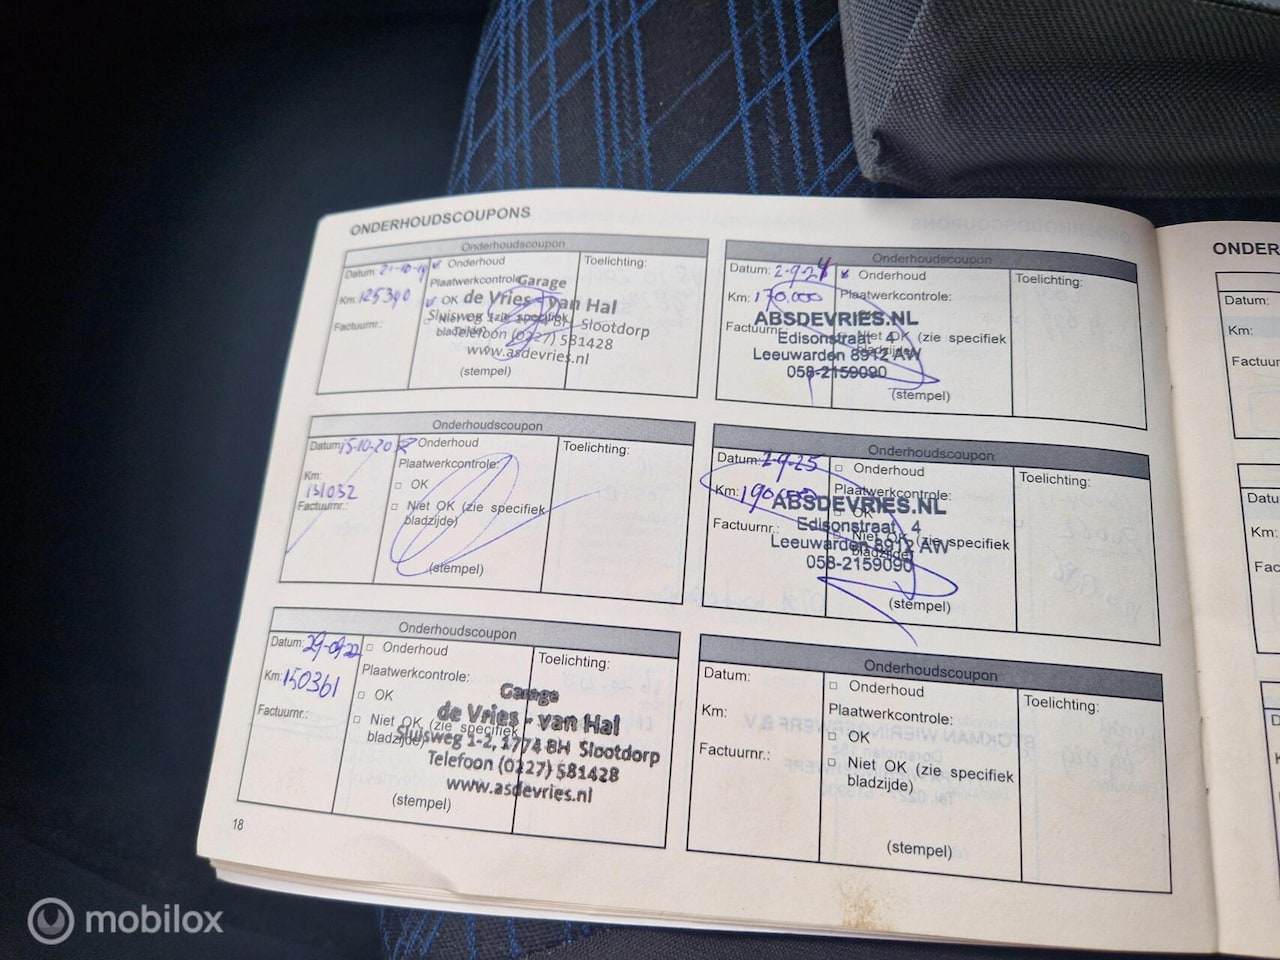 ONDERHOUDSCOUPONS
Onderhoudscoupon
Datum: 21-10-19
Onderhoud
Toelichting:
Km: 125390
Plaatwerkcontrole:
OK
Factuurnr.:
Niet OK (zie specifiek
bladzijde)
Garage
de Vries - van Hal
Sluisweg 1-2, 1774 BH Slootdorp
Telefoon (0227) 581428
www.asdevries.nl
(stempel)
Onderhoudscoupon
Datum: 15-10-20
Onderhoud
Toelichting:
Km:
131032
Plaatwerkcontrole:
OK
Factuurnr.:
Niet OK (zie specifiek
bladzijde)
(stempel)
Onderhoudscoupon
Datum: 29-09-22
Onderhoud
Toelichting:
Km: 150361
Plaatwerkcontrole:
OK
Factuurnr.:
Niet OK (zie specifiek
bladzijde)
Garage
de Vries - van Hal
Sluisweg 1-2, 1774 BH Slootdorp
Telefoon (0227) 581428
www.asdevries.nl
(stempel)
18
Onderhoudscoupon
Datum: 2-9-24
Onderhoud
Toelichting:
Km: 170.000
Plaatwerkcontrole:
OK
Factuurnr.:
Niet OK (zie specifiek
bladzijde)
ABSDEVRIES.NL
Edisonstraat 4
Leeuwarden 8912 AW
058-2159090
(stempel)
Onderhoudscoupon
Datum: 2-9-25
Onderhoud
Toelichting:
Km: 190.000
Plaatwerkcontrole:
OK
Factuurnr.:
Niet OK (zie specifiek
bladzijde)
ABSDEVRIES.NL
Edisonstraat 4
Leeuwarden 8912 AW
058-2159090
(stempel)
Onderhoudscoupon
Datum:
Onderhoud
Toelichting:
Km:
Plaatwerkcontrole:
OK
Factuurnr.:
Niet OK (zie specifiek
bladzijde)
(stempel)
ONDER
Datum:
Km:
Factuur
Datu
Km:
Fac
mobilox